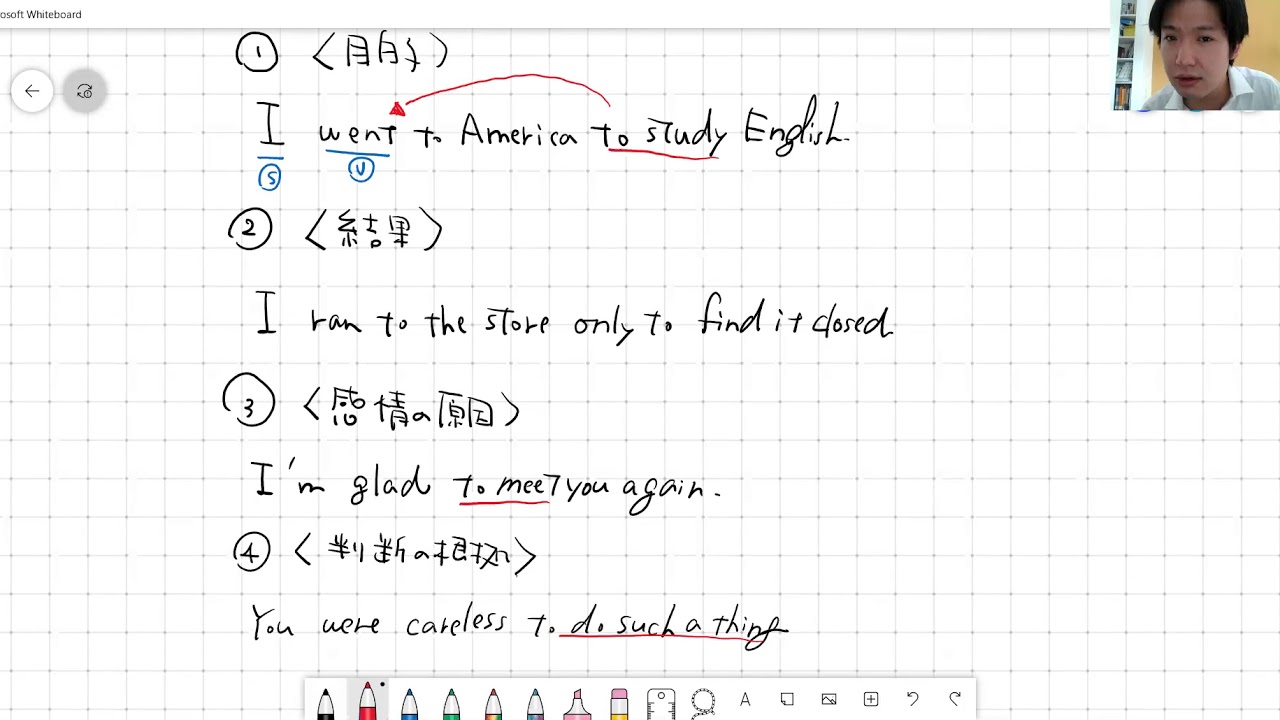 osoft Whiteboard
① 〈目的〉
I went to America to study English.
Ⓢ Ⓥ
② 〈結果〉
I ran to the store only to find it closed
③ 〈感情の原因〉
I'm glad to meet you again.
④ 〈判断の根拠〉
You were careless to do such a thing
A